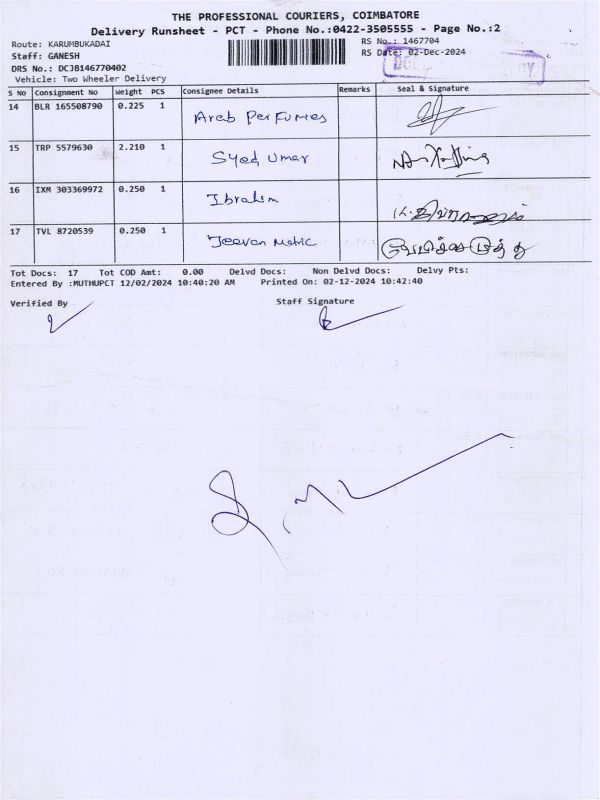 THE PROFESSIONAL COURIERS, COIMBATORE
Delivery Runsheet - PCT - Phone No.:0422-3505555 - Page No.:2
Route: KARUMBUKADAI
RS No.: 1467704
Staff: GANESH
RS Date: 02-Dec-2024
DRS No.: DCJB146770402
Vehicle: Two Wheeler Delivery
S No Consignment No Weight PCS Consignee Details Remarks Seal & Signature
14 BLR 165508790 0.225 1 Arab Perfumes
15 TRP 5579630 2.210 1 Syed Umar
16 IXM 303369972 0.250 1 Ibrahim
17 TVL 8720539 0.250 1 Jeevan Matric
Tot Docs: 17 Tot COD Amt: 0.00 Delvd Docs: Non Delvd Docs: Delvy Pts:
Entered By :MUTHUPCT 12/02/2024 10:40:20 AM Printed On: 02-12-2024 10:42:40
Verified By Staff Signature